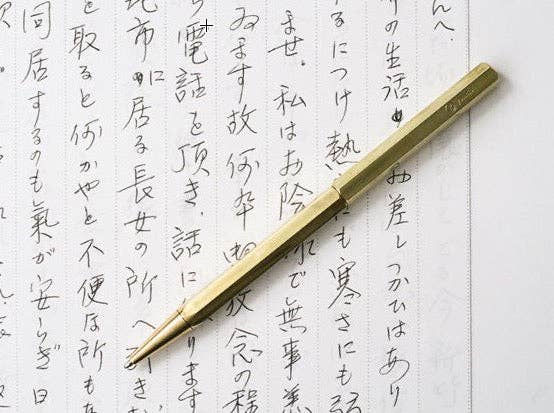 んへ。
りの生活 お差しつかひはあり
るにつけ熱 にも寒さにも
ませ。私はお陰 で無事
ゐます故何卒 放念の程
電話を頂き、話に ります
市に居る長女の所へ
を取ると何かやと不便な所も
同居するのも氣が安らぎ 日